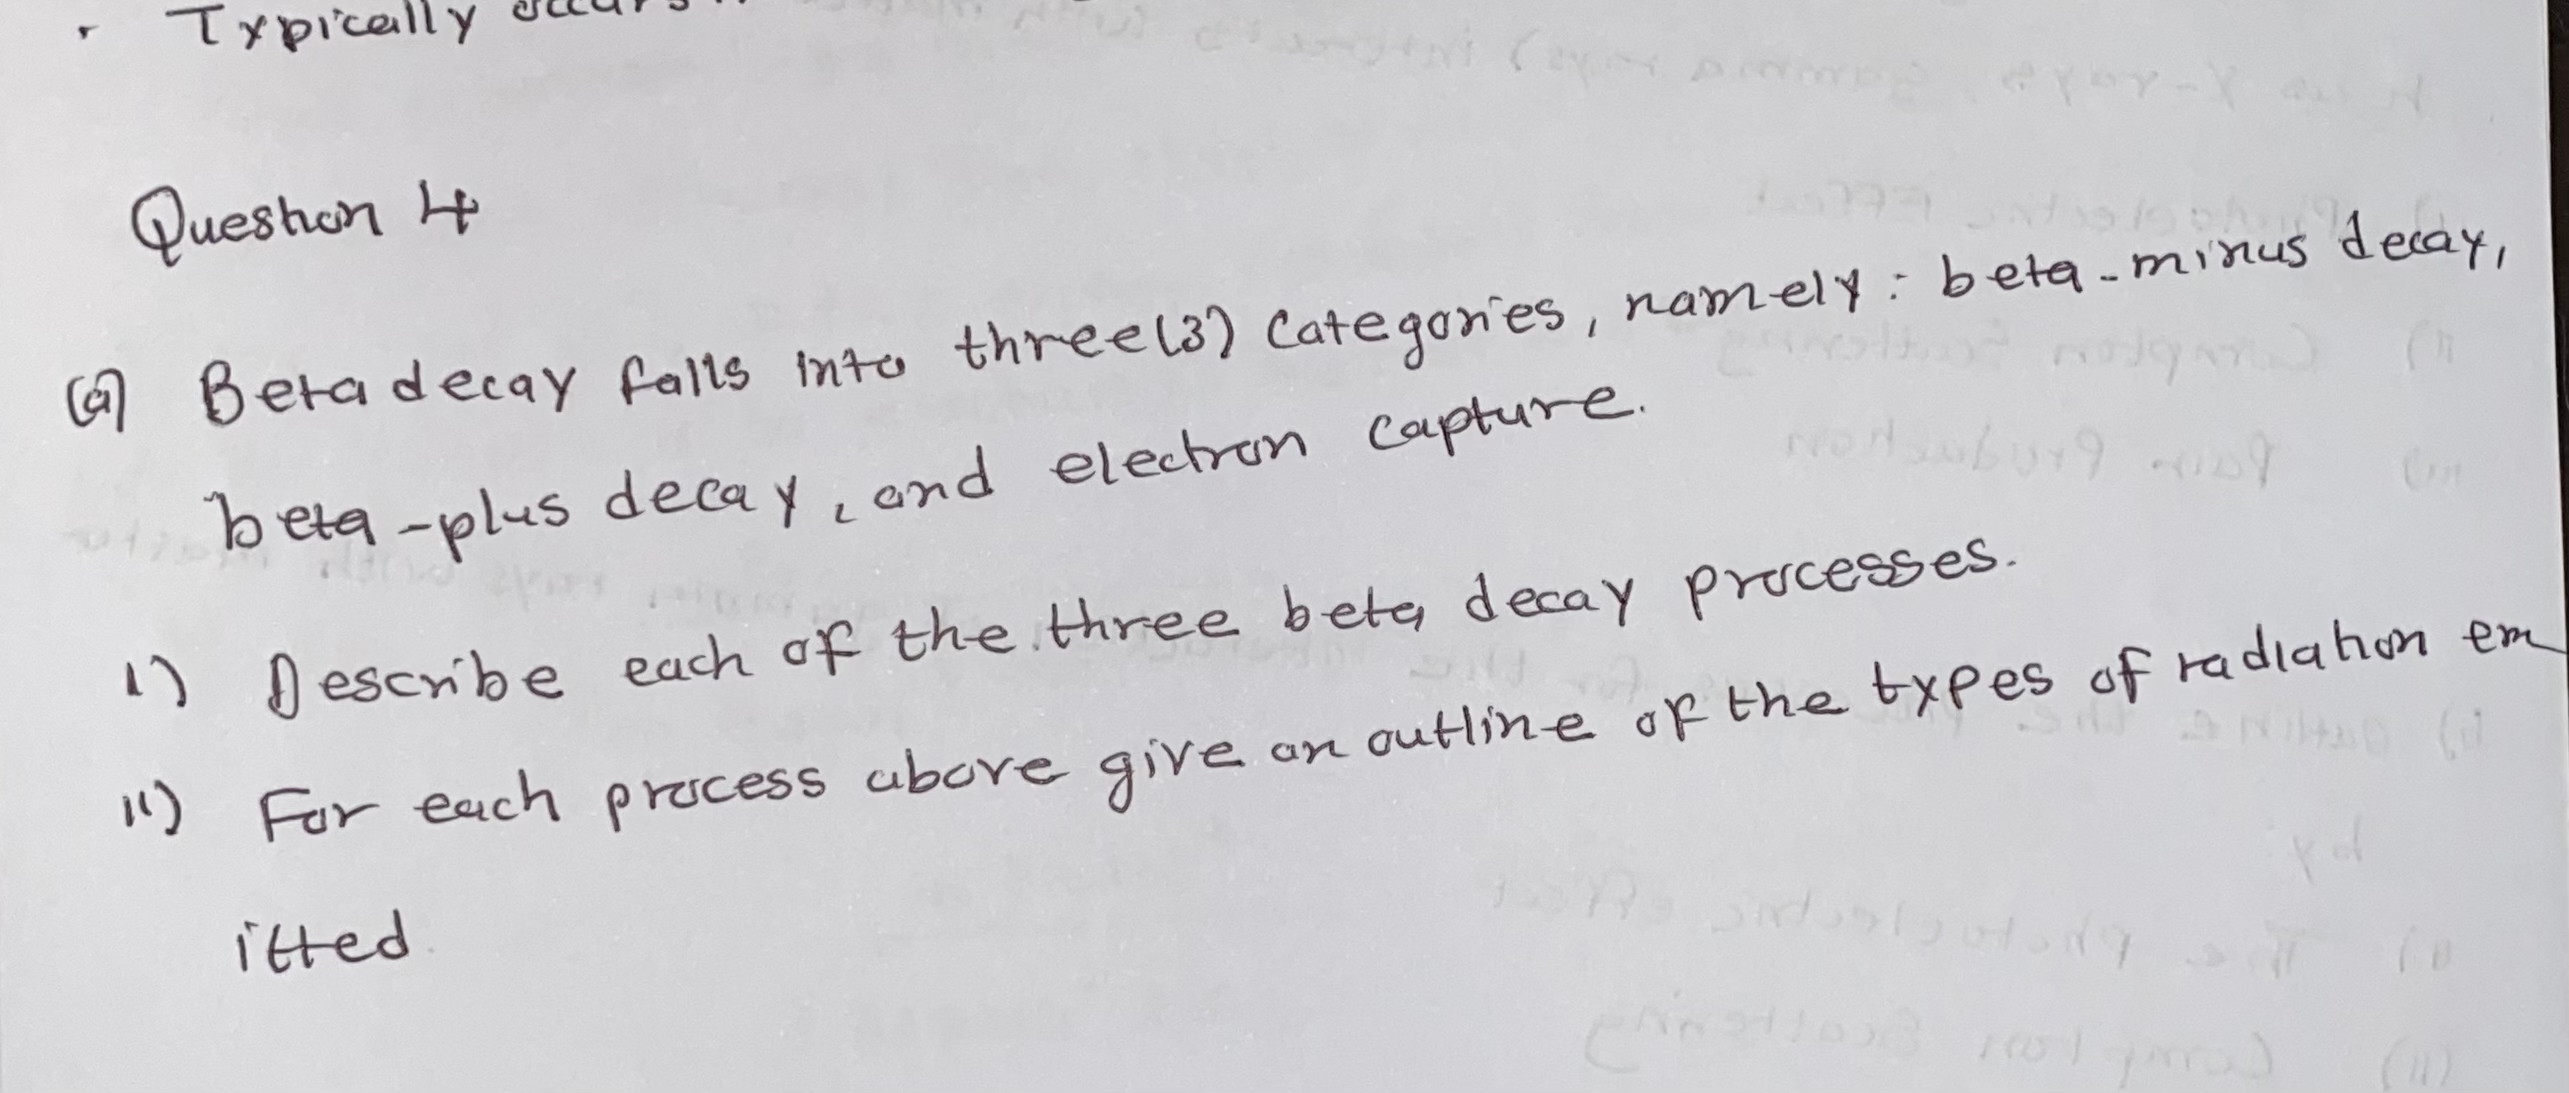 · Typically occurs
Question 4
(a) Beta decay falls into three(3) categories, namely: beta-minus decay,
beta-plus decay, and electron capture.
i) Describe each of the three beta decay processes.
ii) For each process above give an outline of the types of radiation em
itted